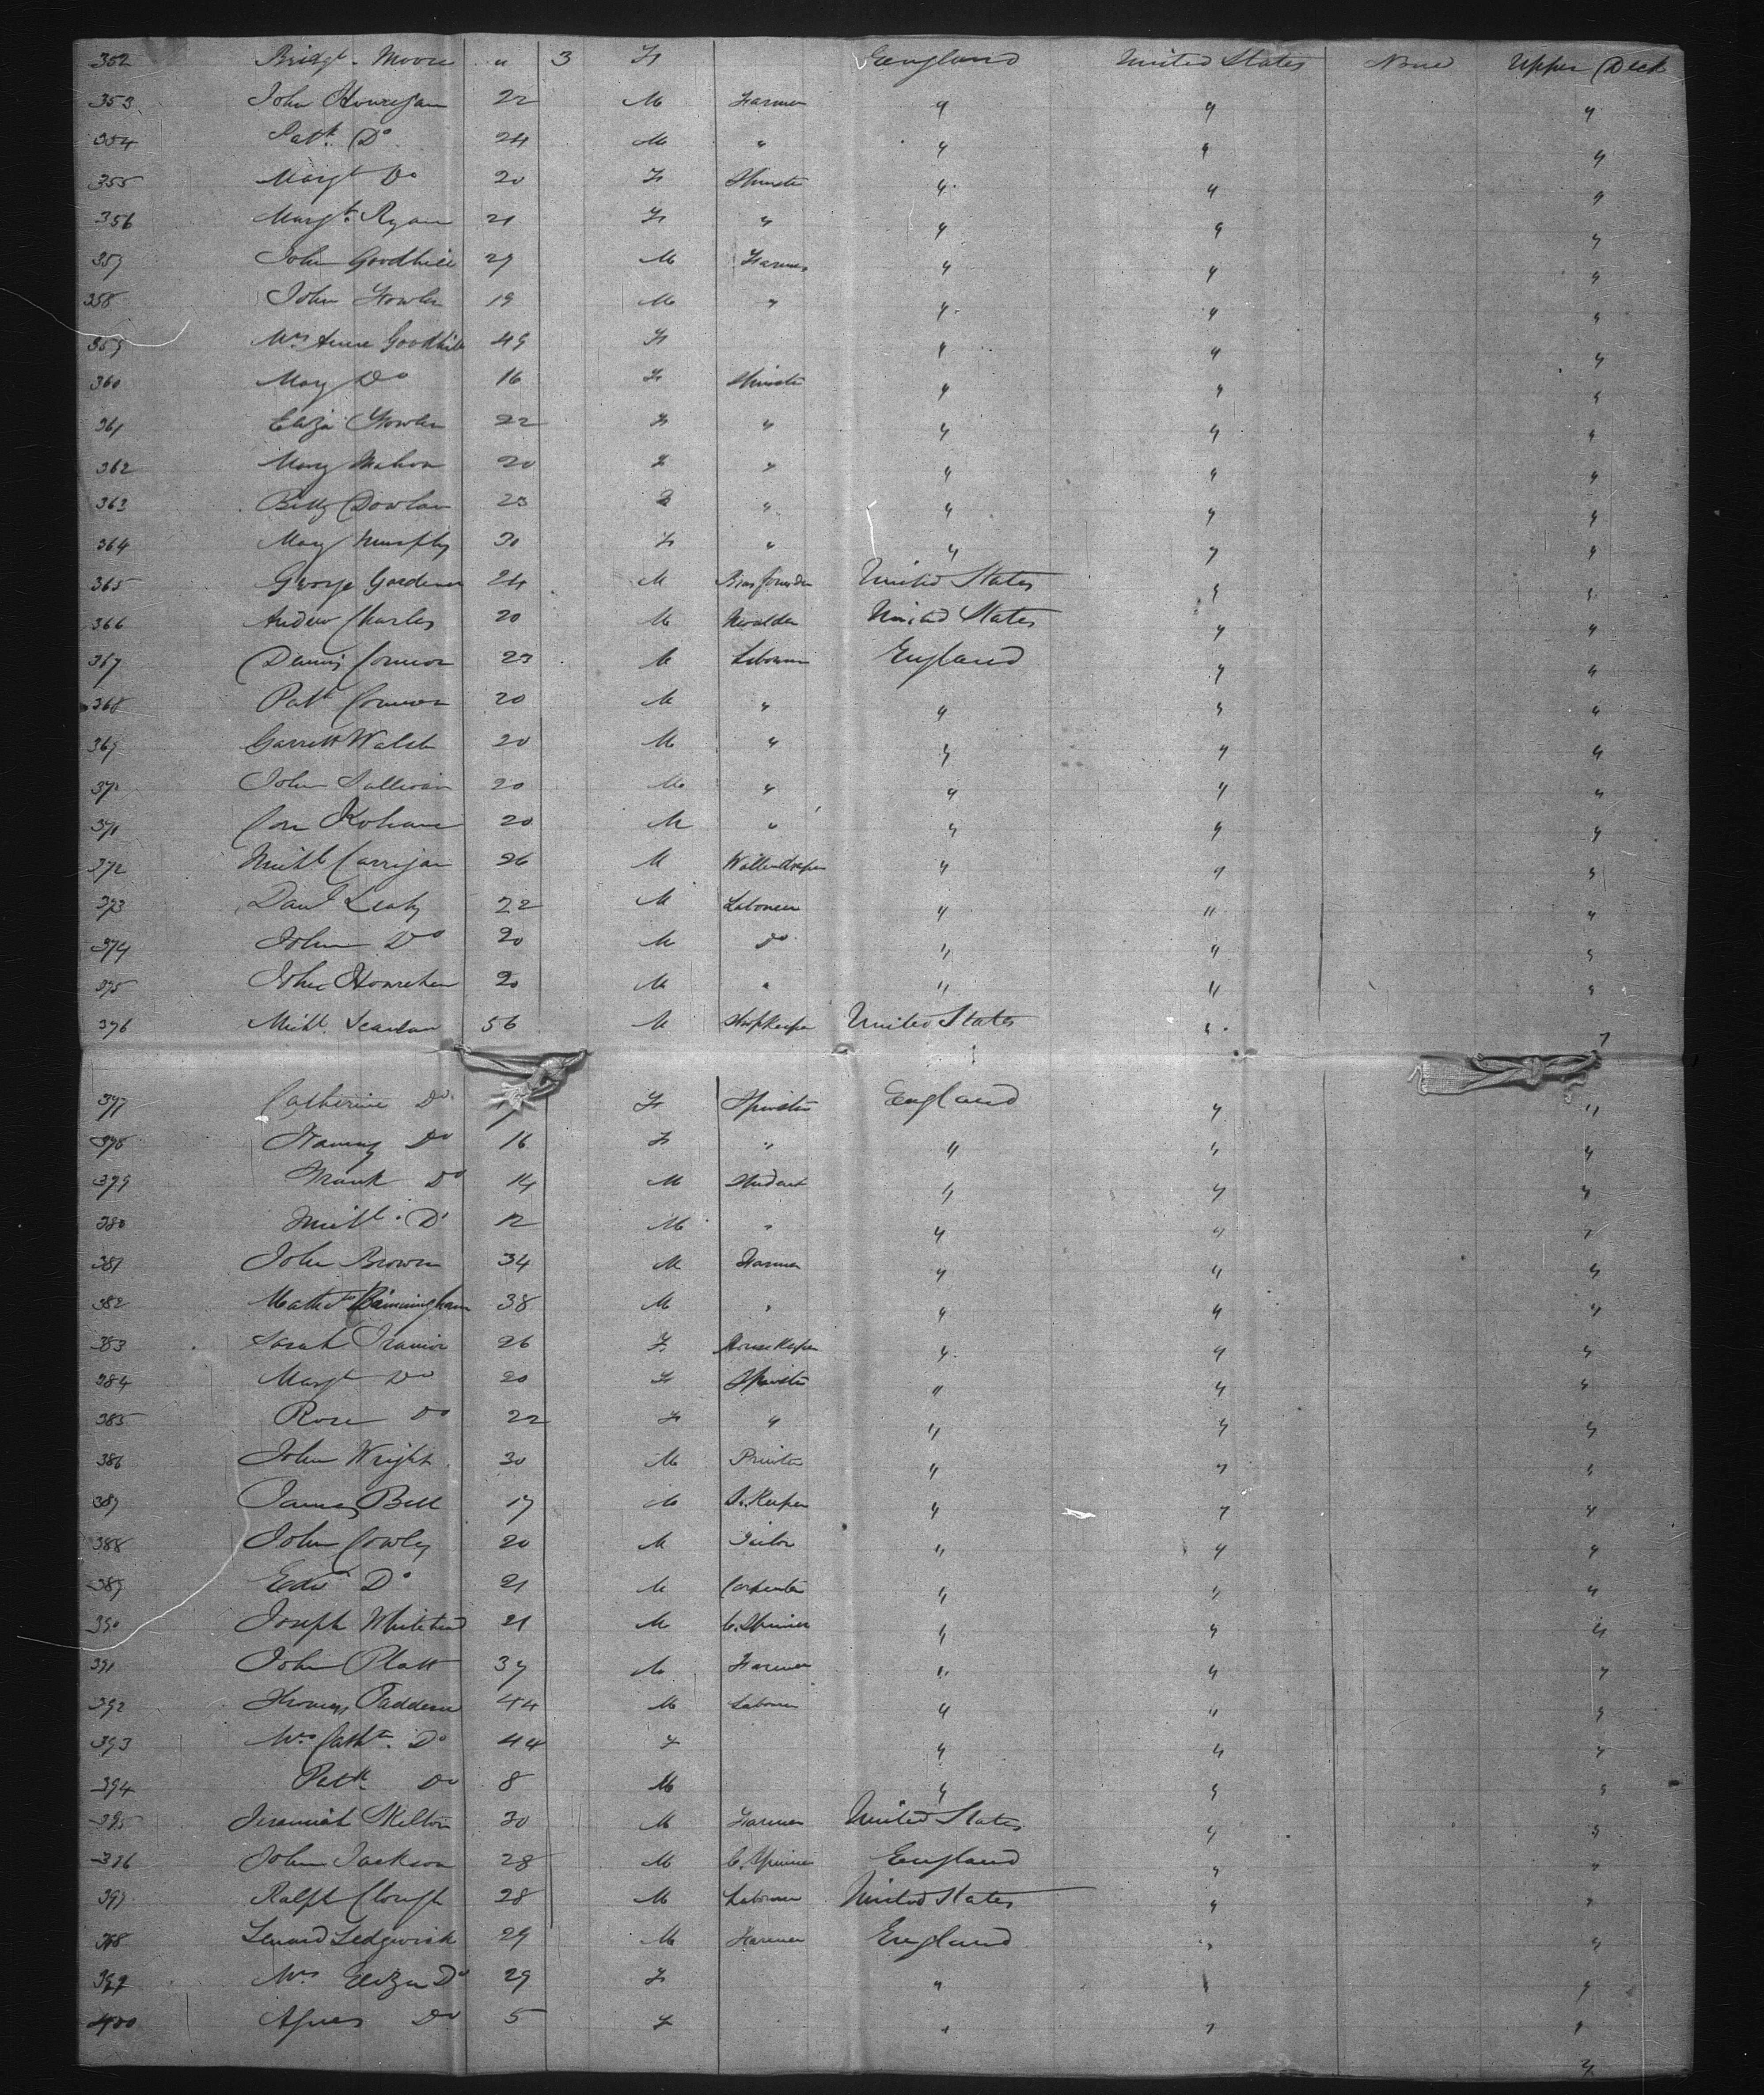 352 Bridgt. Moore " 3 F England United States None Upper Deck
353 John Hourigan 22 M Farmer " " "
354 Patk. Do 24 M " " " "
355 Margt Do 20 F Spinster " " "
356 Margt. Ryan 21 F " " " "
357 John Goodhill 27 M Farmer " " "
358 John Fowler 19 M " " " "
359 Mrs Anne Goodhill 49 F " " "
360 Mary Do 16 F Spinster " " "
361 Eliza Fowler 22 F " " " "
362 Mary Mahon 20 F " " " "
363 Betty Dowlan 23 F " " " "
364 Mary Murphy 30 F " " " "
365 George Gardener 24 M United States " "
366 Andrew Charles 20 M United States " "
367 Dennis Connor 23 M Labourer England " "
368 Patk Connor 20 M " " " "
369 Garrett Walsh 20 M " " " "
370 John Sullivan 20 M " " " "
371 Con 20 M " " " "
372 Michl Carrigan 26 M " " "
373 Danl Leahy 22 M Labourer " " "
374 John Do 20 M Do " " "
375 John Hourihan 20 M " " " "
376 Michl. Scanlan 56 M Shopkeeper United States " "
377 Catherine Do F Spinster England " "
378 Do 16 F " " " "
379 Frank Do 14 M Student " " "
380 Michl. Do 12 M " " " "
381 John Brown 34 M Farmer " " "
382 Mathew Birmingham 38 M " " " "
383 Sarah Trainor 26 F Housekeeper " " "
384 Margt Do 20 F Spinster " " "
385 Rose Do 22 F " " " "
386 John Wright 30 M Printer " " "
387 James Bell 17 M S. Keeper " " "
388 John Cowley 20 M Tailor " " "
389 Edwd Do 21 M Carpenter " " "
390 Joseph Whitehead 21 M C. Spinner " " "
391 John Platt 37 M Farmer " " "
392 Thomas Padden 44 M Labourer " " "
393 Mrs Cathn. Do 44 F " " "
394 Patk Do 8 M " " "
395 Jeremiah Skelton 30 M Farmer United States " "
396 John Jackson 28 M C. Spinner England " "
397 Ralph Clough 28 M Labourer United States " "
398 Lenard Sedgwick 29 M Farmer England " "
399 Mrs Eliza Do 29 F " " "
400 Agnes Do 5 F " " "
"